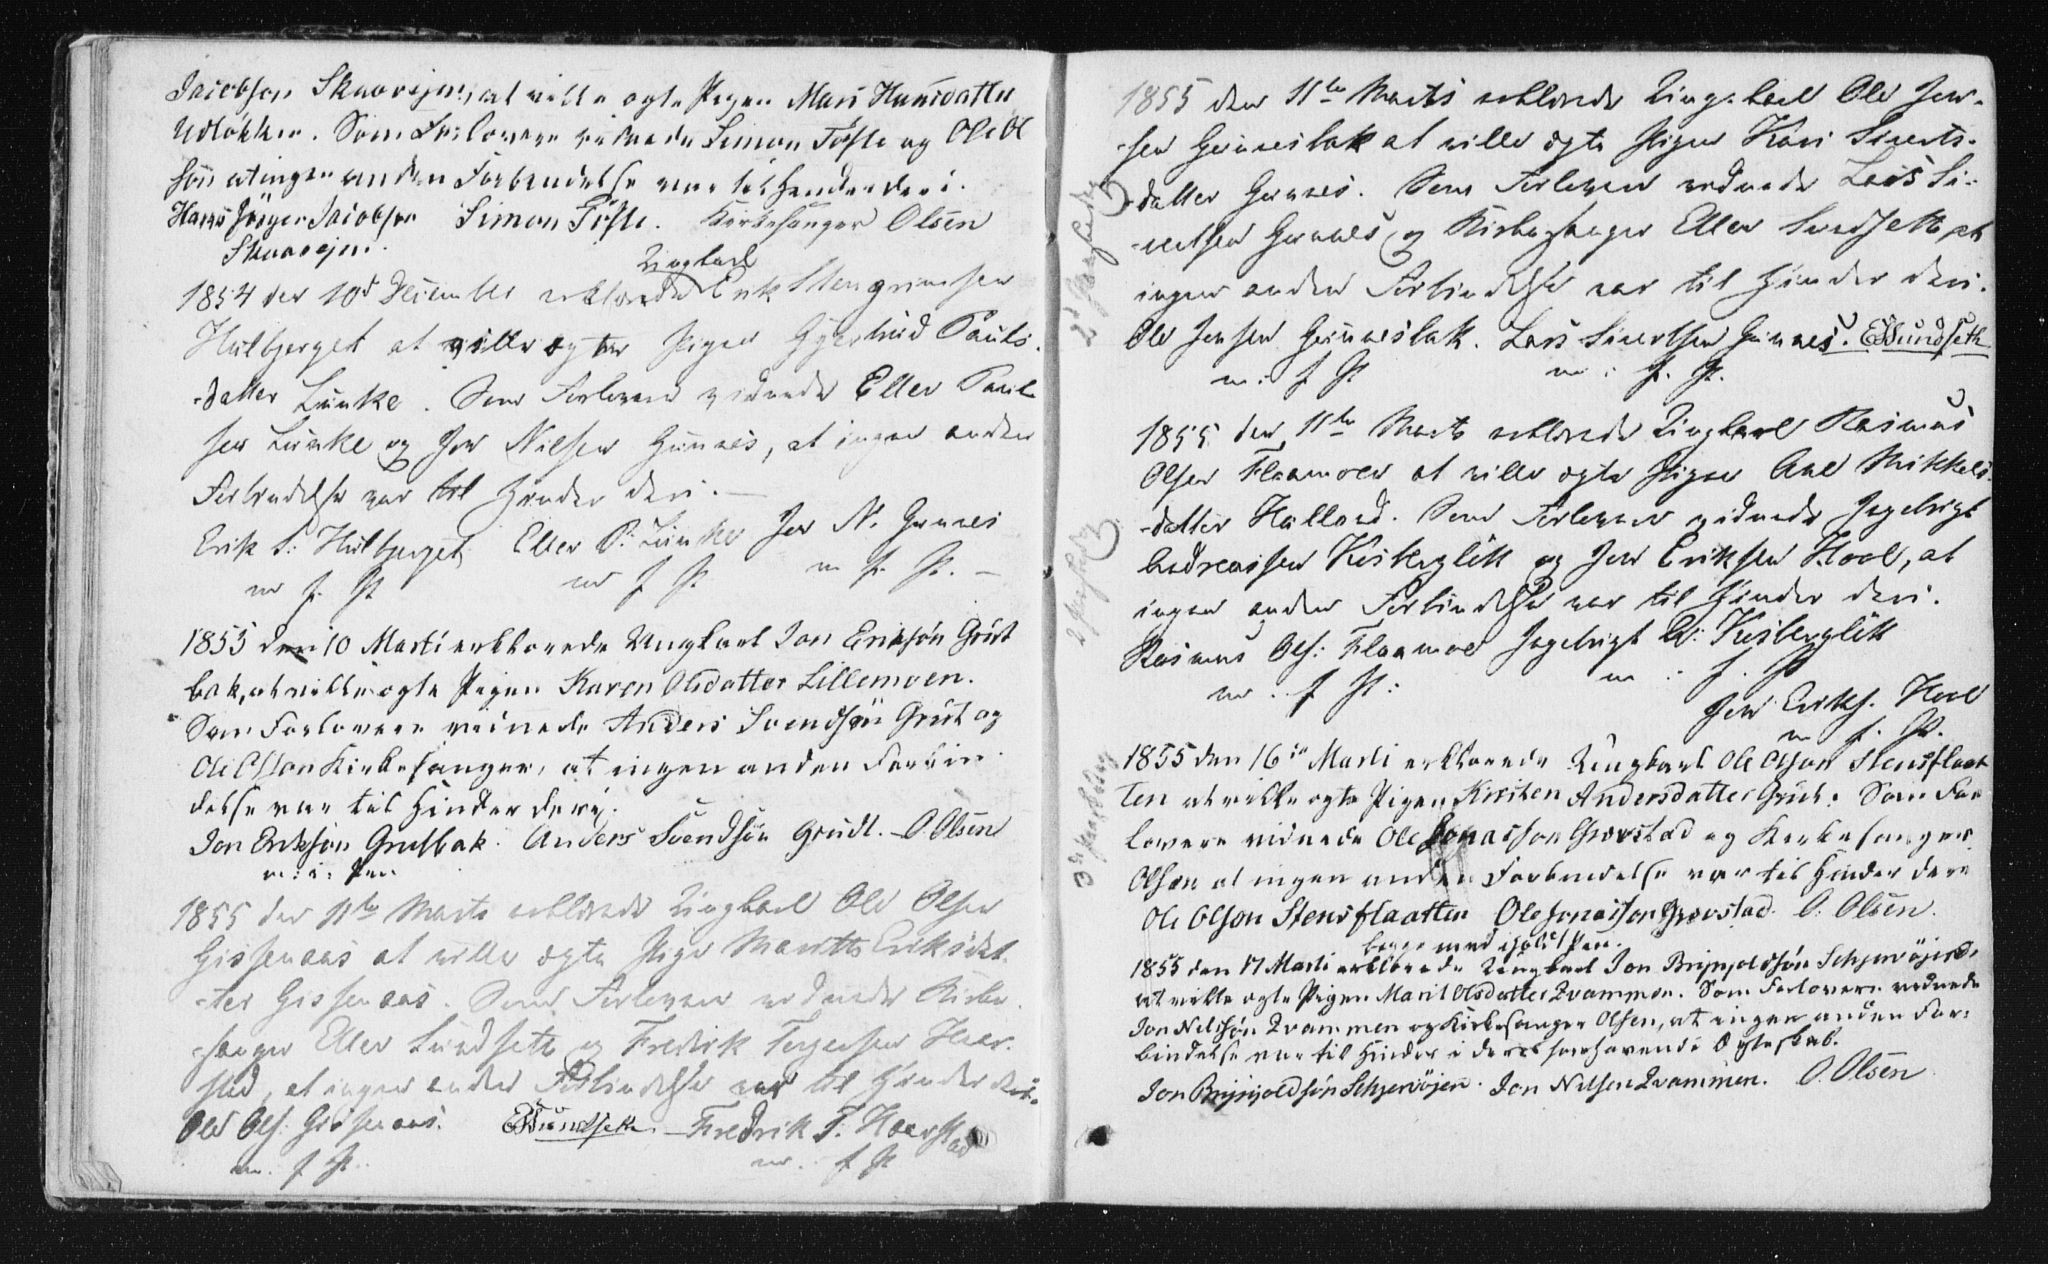 Jacobson Skaarøjen, at ville ægte Pigen Mari Hansdatter
Udløkken. Som Forlovere vidnede Simon Tøfte og Ole Ol
søn at ingen anden Forbindelse var til Hender deri.
Hans Jørgen Jacobson Simon Tøfte. Kirkesanger Olsen
Skaarøjen.
Ungkarl
1854 den 10d December erklærede Erik Stengrimsen
Hulbjerget at ville ægte Pigen Gjertrud Pauls-
-datter Lunke. Som Forlovere vidnede Eller Paul-
sen Lunke og Jon Nilsen Gunnes, at ingen anden
Forbindelse var til Hinder deri. —
Erik S: Hulbjerget Eller P: Lunke Jon N. Gunnes
m f. P. m f P. m f. P. —
1855 den 10 Marti erklærede Ungkarl Jon Eriksøn Grut
bak, at ville ægte Pigen Karen Olsdatter Lillemoen.
Som Forlovere vidnede Anders Svendsøn Grut og
Ole Olson Kirkesanger, at ingen anden Forbin-
delse var til Hinder deri.
Jon Erikson Grutbak. Anders Svendsøn Grudt. O. Olsen
m. i. Pen
1855 den 11te Marts erklærede Ungkarl Ole Olsen
Gissenaas at ville ægte Pige Maritte Eriksdat-
-ter Gissenaas. Som Forlovere vidnede Kirke-
-sanger Eller Sundseth og Fredrik Haar-
stad, at ingen anden Forbindelse var til Hinder deri.
Ole Ols: Gissenaas. ESundseth. Fredrik T. Haarstad
m. f P. m. f P.
1855 den 11te Marts erklærede Ungkarl Ole Jen-
-sen at ville ægte Pigen Kari Siverts-
-datter Gunnes. Som Forlovere vidnede Lars Si-
-vertsen Gunnes og Kirkesanger Eller Sundseth, at
ingen anden Forbindelse var til Hinder deri.
Ole Jensen Lars Sivertsen Gunnes. ESundseth
m: f P. m: f. P.
1855 den 11te Marts erklærede Ungkarl Rasmus
Olsen Flaamoen at ville ægte Pigen Mikkels-
-datter Halland. Som Forlovere vidnede Ingebrigt
Andreassen Kirkeflet og Jon Eriksen Hool, at
ingen anden Forbindelse var til Hinder deri.
Rasmus Ols: Flaamoe Ingebrigt A:
m. f P: m: f. P
Jon Eriks. Hool
m f. P.
1855 den 16de Marti erklærede Ungkarl Ole Olson Stensflaat
ten at ville ægte Pigen Kirsten Andersdatter Grut. Som For
lovere vidnede Ole Jonasson Grovstad og Kirkesanger
Olsen at ingen anden Forbindelse var til Hinder deri
Ole Olson Stensflaatten Ole Jonasson Grovstad. O. Olsen.
begge med iholdt Pen.
1855 den 17 Marti erklærede Ungkarl Jon Brynjoldsøn Schjerøjen,
at ville ægte Pigen Marit Olsdatter Zvammen. Som Forlovere vidnede
Jon Nelssøn Zvammen og Kirkesanger Olsen, at ingen anden For-
bindelse var til Hinder i deres forehavende Ægteskab.
Jon Brynjoldsøn Schjerøjen. Jon Nelsen Zvammen. O. Olsen